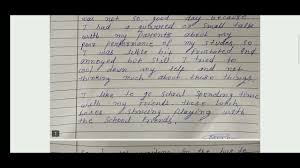 was not so good day because
I had a quarrel or small talk
with my parents about my
poor performance of my studies, so
I was little bit frustrated and
annoyed but still I tried to
cool down my self and not
thinking much about these things.
I like to go school spending time
with my friends these lunch
boxes / sharing playing with
the school friends.